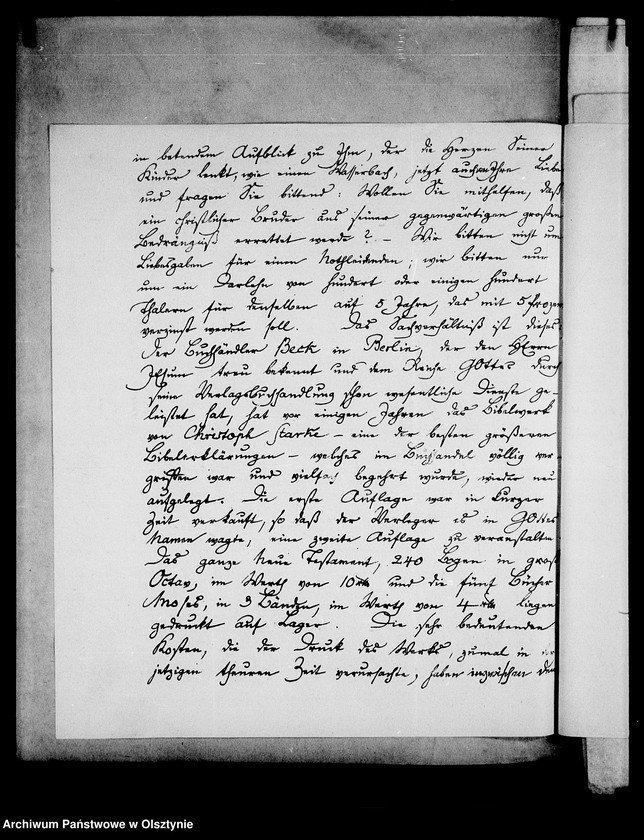 in betendem Aufblick zu Ihm, der die Herzen Seiner
Kinder lenkt, wie einen Wasserbach, jetzt auch an Ihre Liebe
und fragen Sie bittend: Wollen Sie mithelfen, daß
ein christlicher Bruder aus seiner gegenwärtigen großen
Bedrängniß errettet werde? – Wir bitten nicht um
Liebesgaben für einen Nothleidenden; wir bitten nur
um ein Darlehn von hundert oder einigen hundert
Thalern für denselben auf 5 Jahre, das mit 5 Prozent
verzinst werden soll. Das Sachverhältniß ist dieses:
Der Buchhändler Beck in Berlin, der den HErrn
JEsum treu bekennt und dem Reiche GOttes durch
seine Verlagsbuchhandlung schon wesentliche Dienste ge-
leistet hat, hat vor einigen Jahren das Bibelwerk
von Christoph Starke – eine der besten größeren
Bibelerklärungen – welches im Buchhandel völlig ver-
griffen war und vielfach begehrt wurde, wieder neu
aufgelegt. Die erste Auflage war in kurzer
Zeit verkauft, so daß der Verleger es in GOttes
Namen wagte, eine zweite Auflage zu veranstalten.
Das ganze Neue Testament, 240 Bogen in groß
Octav, im Werth von 10 rth und die fünf Bücher
Moses, in 3 Bänden, im Werth von 4 rth liegen
gedruckt auf Lager. Die sehr bedeutenden
Kosten, die der Druck des Werks, zumal in der
jetzigen theuren Zeit verursachte, haben inzwischen den
Archiwum Państwowe w Olsztynie